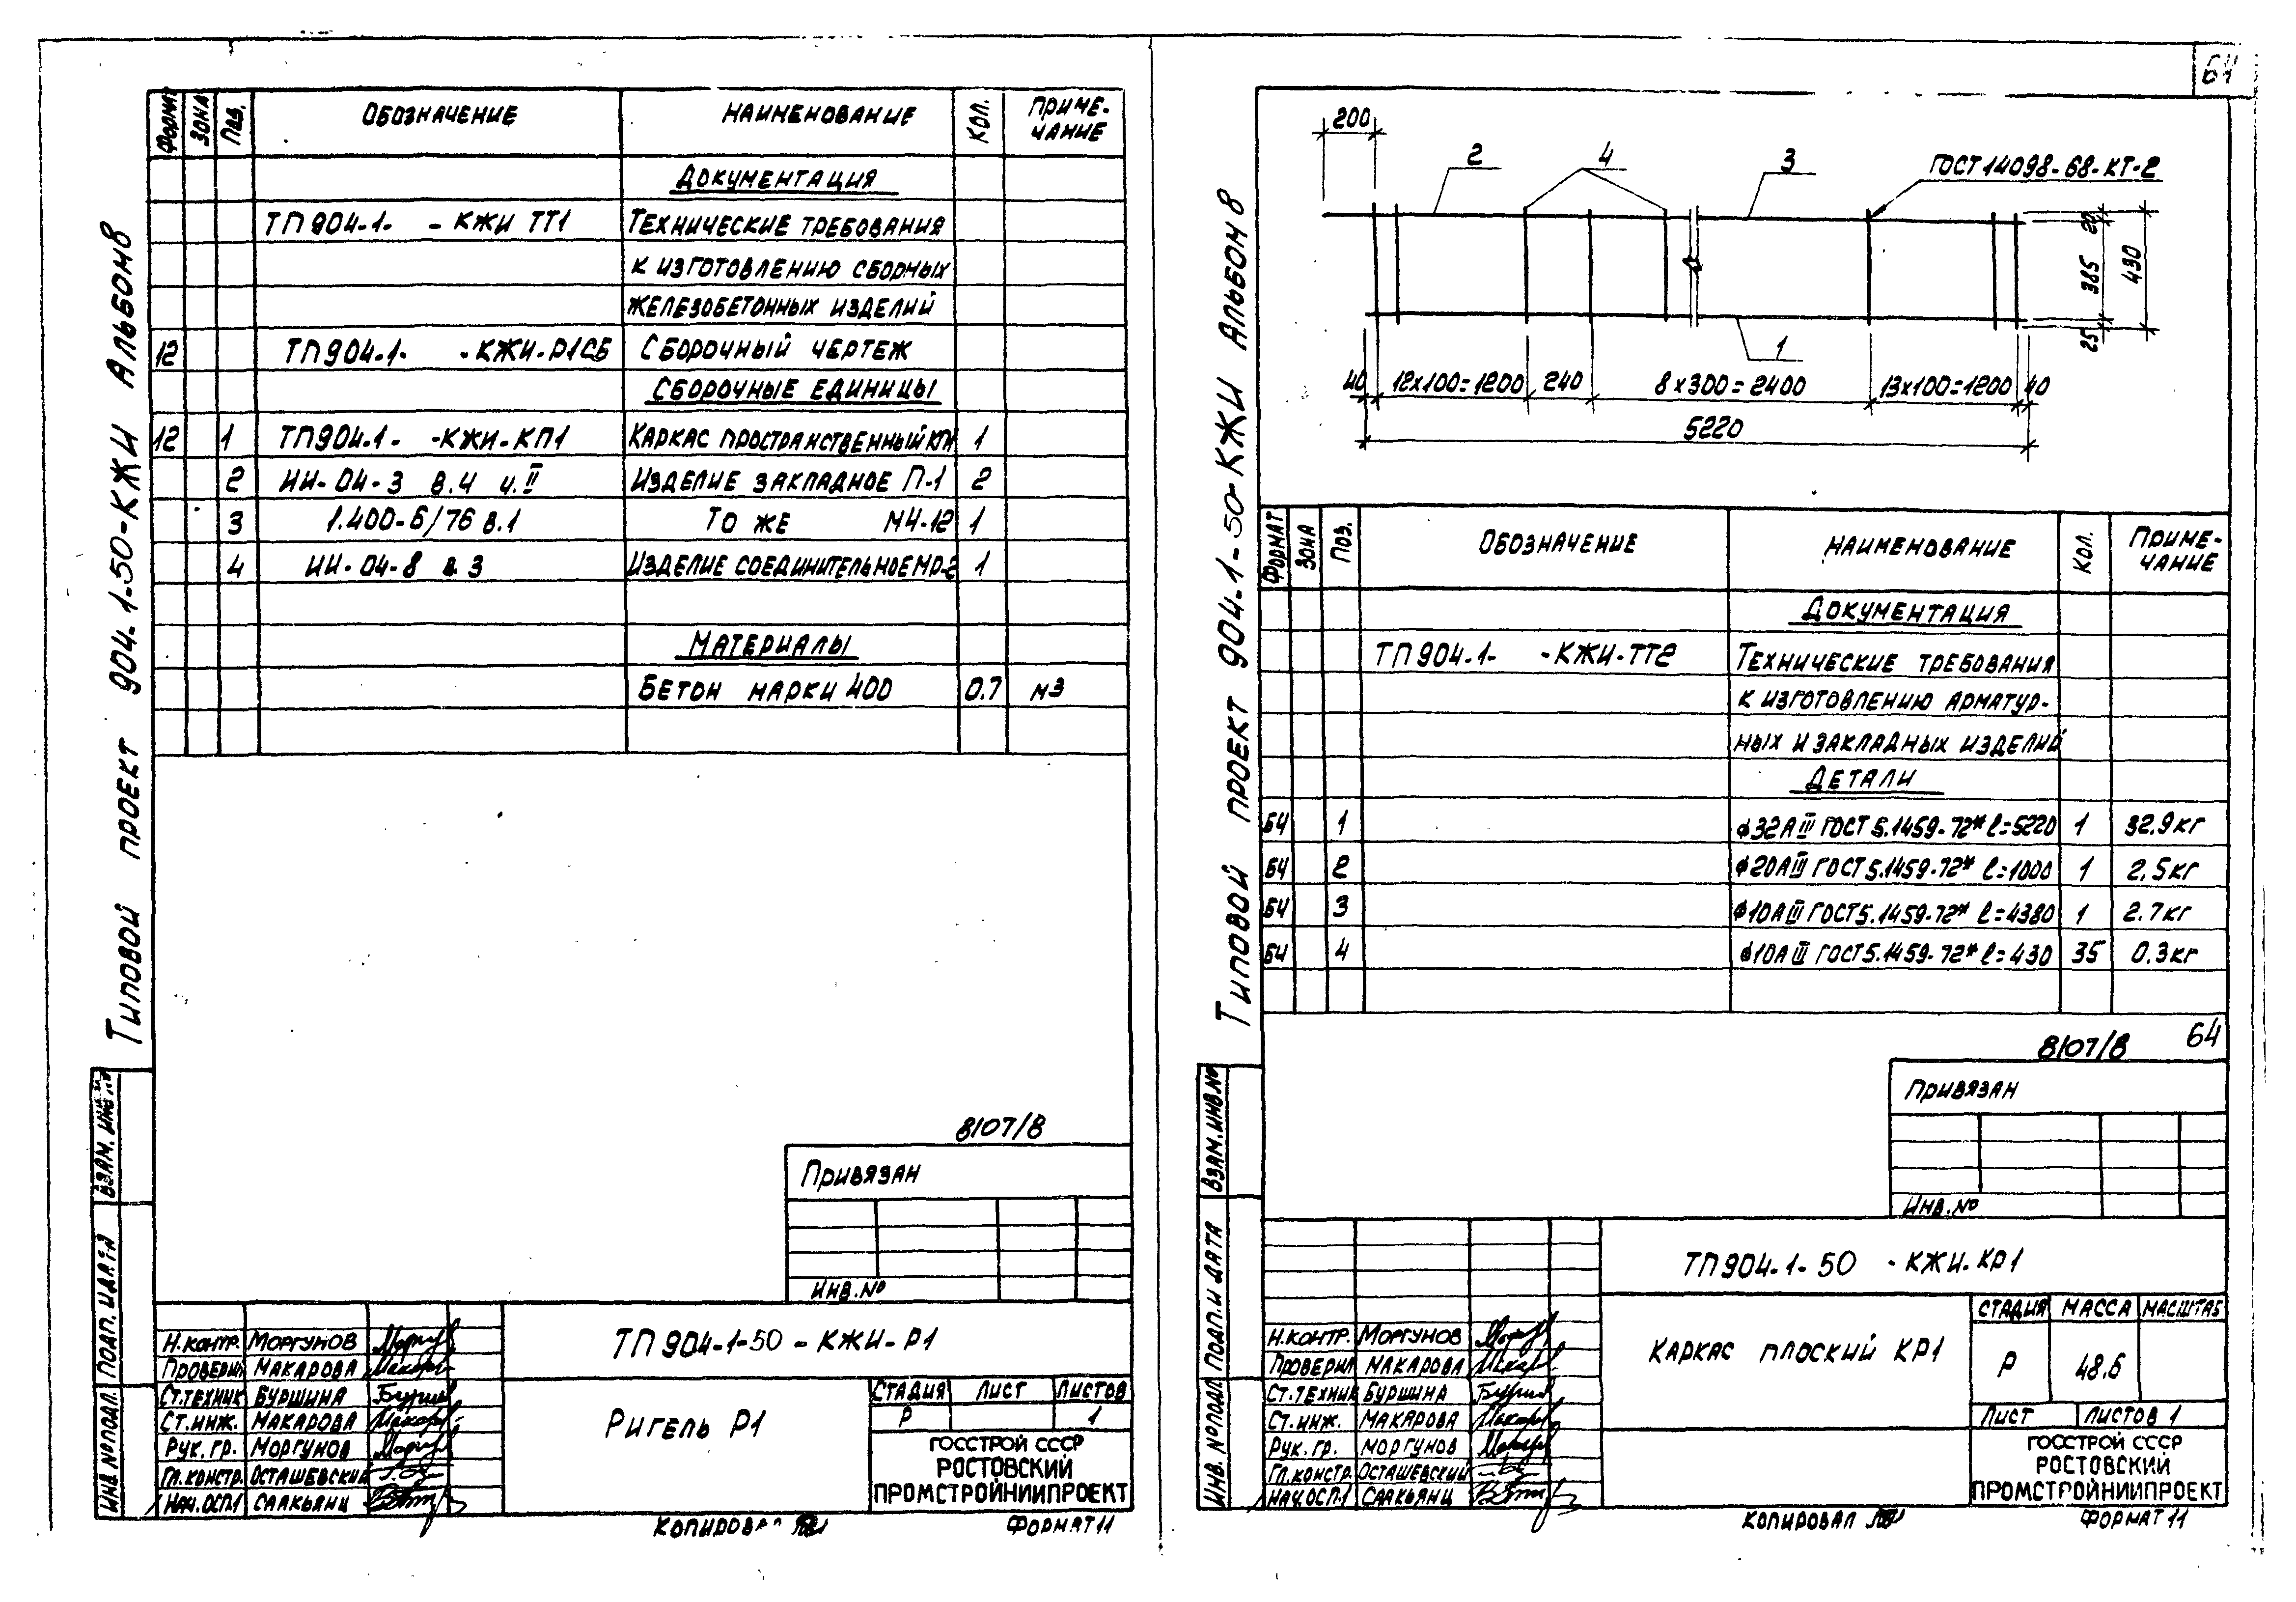 Типовой проект 904-1-50-КЖИ Альбом 8
Формат Зона Поз. Обозначение Наименование Кол. Приме-
чание
Документация
ТП 904-1- -КЖИ ТТ1 Технические требования
к изготовлению сборных
железобетонных изделий
12 ТП 904-1- -КЖИ-Р1СБ Сборочный чертеж
Сборочные единицы
12 1 ТП 904-1- -КЖИ-КП1 Каркас пространственный КП1 1
2 ИИ-04-3 в.4 ч.II Изделие закладное П-1 2
3 1.400-6/76 в.1 То же М4-12 1
4 ИИ-04-8 в 3 Изделие соединительное МР-2 1
Материалы
Бетон марки 400 0.7 м3
8107/8
Привязан
Инв.№
Взам. инв.№
Подп. и дата
Инв.№подл.
ТП 904-1-50-КЖИ-Р1
Н.контр. Моргунов
Проверил Макарова
Ст.техник Буршина
Ст.инж. Макарова
Рук.гр. Моргунов
Гл.констр. Осташевский
Нач.осп.1 Саакьянц
Ригель Р1
Стадия Лист Листов
Р 1
ГОССТРОЙ СССР
РОСТОВСКИЙ
ПРОМСТРОЙНИИПРОЕКТ
Копировал
Формат 11
64
Типовой проект 904-1-50-КЖИ Альбом 8
200
2 4 3 ГОСТ 14098-68-КТ-2
20
385
430
25
1
40 12х100=1200 240 8х300=2400 13х100=1200 40
5220
Формат Зона Поз. Обозначение Наименование Кол. Приме-
чание
Документация
ТП 904-1- -КЖИ-ТТ2 Технические требования
к изготовлению арматур-
ных и закладных изделий
Детали
БЧ 1 ф32АIII ГОСТ 5.1459-72* ℓ=5220 1 32.9кг
БЧ 2 ф20АIII ГОСТ 5.1459-72* ℓ=1000 1 2.5кг
БЧ 3 ф10АIII ГОСТ 5.1459-72* ℓ=4380 1 2.7кг
БЧ 4 ф10АIII ГОСТ 5.1459-72* ℓ=430 35 0.3кг
8107/8 64
Привязан
Инв.№
Взам.инв.№
Подп.и дата
Инв.№подл
ТП 904-1-50 -КЖИ-КР1
Н.контр. Моргунов
Проверил Макарова
Ст.техник Буршина
Ст.инж. Макарова
Рук.гр. Моргунов
Гл.констр. Осташевский
Нач.осп.1 Саакьянц
Каркас плоский КР1
Стадия Масса Масштаб
Р 48.6
Лист Листов 1
ГОССТРОЙ СССР
РОСТОВСКИЙ
ПРОМСТРОЙНИИПРОЕКТ
Копировал
Формат 11